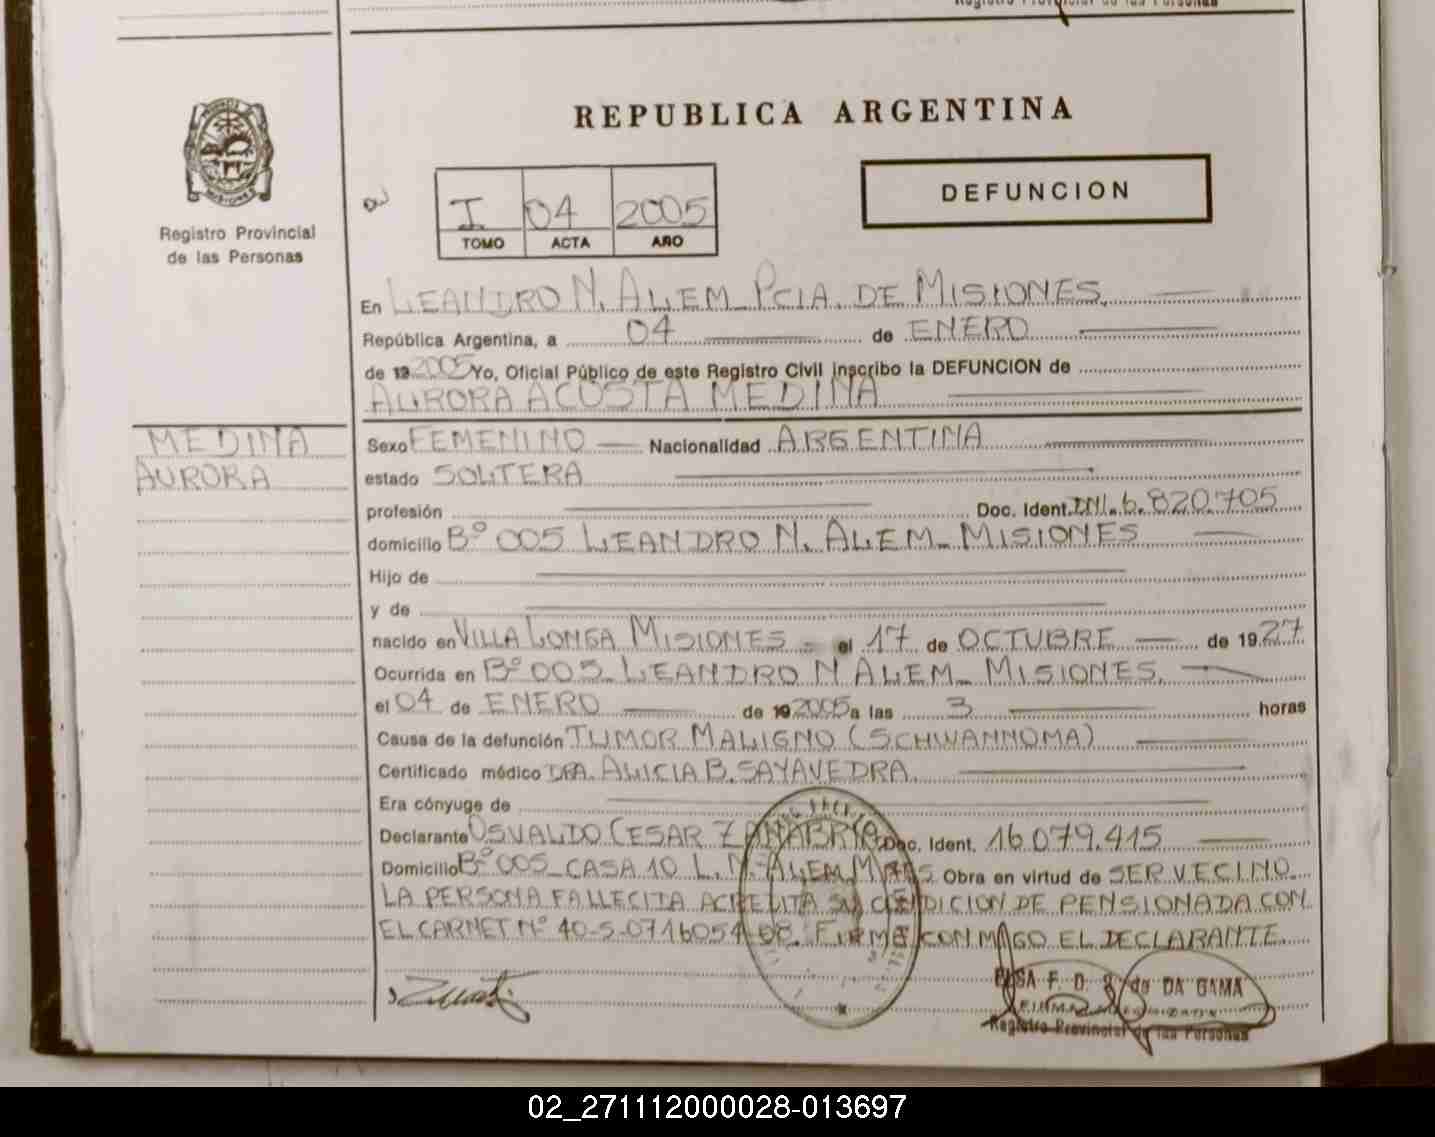 Registro Provincial de las Personas
REPUBLICA ARGENTINA
DEFUNCION
I 04 2005
TOMO ACTA AÑO
Registro Provincial
de las Personas
En LEANDRO N. ALEM_ PCIA. DE MISIONES.
República Argentina, a 04 de ENERO
de 192005 Yo, Oficial Público de este Registro Civil inscribo la DEFUNCION de
AURORA ACOSTA MEDINA
MEDINA
AURORA
Sexo FEMENINO Nacionalidad ARGENTINA
estado SOLTERA
profesión Doc. Ident. DNI. 6.820.705
domicilio Bº 005 LEANDRO N. ALEM_ MISIONES
Hijo de
y de
nacido en VILLA LONGA MISIONES el 17 de OCTUBRE de 1927
Ocurrida en Bº 005_ LEANDRO N ALEM_ MISIONES.
el 04 de ENERO de 192005 a las 3 horas
Causa de la defunción TUMOR MALIGNO (SCHWANNOMA)
Certificado médico DRA. ALICIA B. SAYAVEDRA.
Era cónyuge de
Declarante OSVALDO CESAR ZANABRIA Doc. Ident. 16.079.415
Domicilio Bº 005_ CASA 10 L. N. ALEM Mnes Obra en virtud de SER VECINO_
LA PERSONA FALLECIDA ACREDITA SU CONDICION DE PENSIONADA CON
EL CARNET Nº 40-5-0716054-08. FIRMA CONMIGO EL DECLARANTE
ELSA F. D. S. de DA GAMA
Registro Provincial de las Personas
02_271112000028-013697